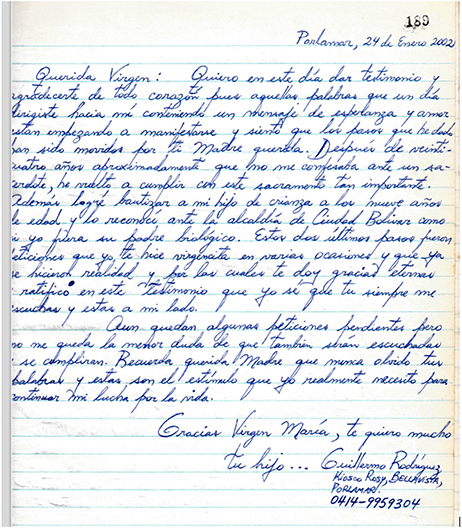 189
Porlamar, 24 de Enero 2002
Querida Virgen: Quiero en este día dar testimonio y
agradecerte de todo corazón pues aquellas palabras que un día
dirigiste hacia mí conteniendo un mensaje de esperanza y amor
estan empezando a manifestarse y siento que los pasos que he dado
han sido movidos por ti Madre querida. Después de veinti-
cuatro años aproximadamente que no me confesaba ante un sa-
cerdote, he vuelto a cumplir con este sacramento tan importante.
Además logré bautizar a mi hijo de crianza a los nueve años
de edad y lo reconocí ante la alcaldía de Ciudad Bolívar como
si yo fuera su padre biológico. Estos dos últimos pasos fueron
peticiones que yo te hice virgencita en varias ocasiones y que ya
se hicieron realidad y por las cuales te doy gracias eternas
ratifico en este testimonio que yo sé que tu siempre me
escuchas y estas a mi lado.
Aun quedan algunas peticiones pendientes pero
no me queda la menor duda de que tambien seran escuchadas
y se cumpliran. Recuerda querida Madre que nunca olvido tus
palabras y estas son el estímulo que yo realmente necesito para
continuar mi lucha por la vida.
Gracias Virgen María, te quiero mucho
tu hijo... Guillermo Rodríguez
Kiosco Rosy, BELLAVISTA,
PORLAMAR.
0414-9959304